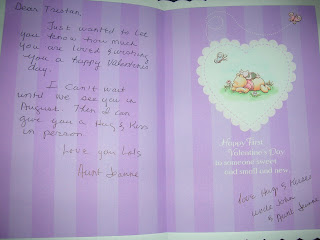 Dear Tristan,
Just wanted to let
you know how much
you are loved & wishing
you a happy Valentine's
day.
I can't wait
until we see you in
August. Then I can
give you a Hug & Kiss
in person.
Love you Lots
Aunt Jeanne
Happy First
Valentine's Day
to someone sweet
and small and new.
Love Hugs & Kisses
Uncle John
& Aunt Jeanne